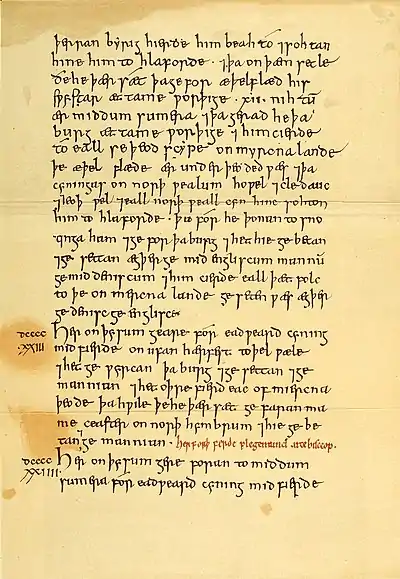 þæran byrig hierde him beah to ⁊ sohtan
hine him to hlaforde · ⁊ þa on þæm setle
ðe he þær sæt þa ge for æþelflæd his
sƿystar æt tame ƿorþige · xii · nihtū
ær middum sumera ⁊ þa gerad he þa
burg æt tame ƿorþige ⁊ him cierde
to eall se þeod scype on myrcna lande
þe æþel flæde ær under þeoded ƿæs ⁊ þa
cyningas on norþ ƿealum hoƿel ⁊ cledauc
⁊ ieoþ ƿel ⁊ eall norþ ƿeall cyn hine sohton
him to hlaforde · þa for he þonan to sno
tinga ham ⁊ ge for þa burg ⁊ het hie ge betan
⁊ ge settan ægþer ge mid engliscum mannū
ge mid deniscum ⁊ him cierde eall þæt folc
to þe on mercna lande ge seten ƿæs ægþer
ge denisc ge englisce
dcccc xxiii Her on þysum geare for eadƿeard cyning
mid fierde on ufan hærfest to þel ƿæle
⁊ het ge ƿyrcan þa burg ⁊ ge settan ⁊ ge
mannian ⁊ het oþre fierd eac of miercna
þeode þa hƿile þe he þær sæt ge faran ma
me ceaster on norþ hymbrum ⁊ hie ge be
tan ⁊ ge mannian · her forþ ferde plegemund arcebiscop.
dcccc xxiiii Her on þysum gere foran to middum
sumera for eadƿeard cyning mid fierde